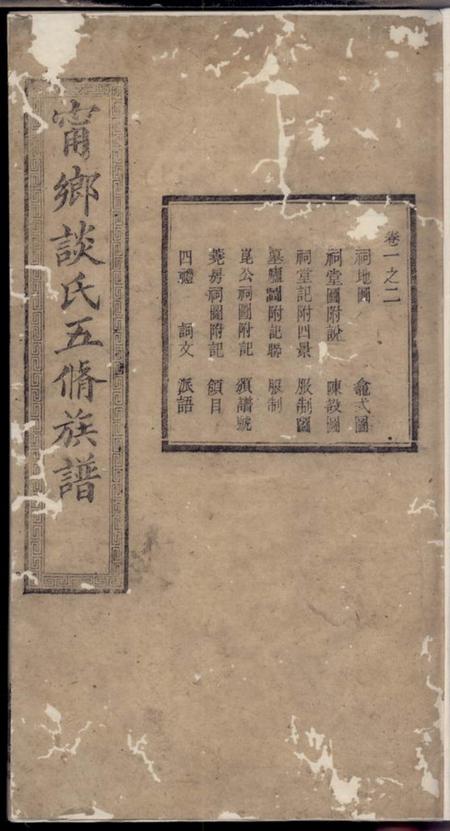 甯鄉談氏五脩族譜
卷一之二
祠地圖 龕式圖
祠堂圖附說 陳設圖
祠堂記附四景 服制圖
墓廬圖附記聯 服制
崑公祠圖附記 領譜號
蕘房祠圖附記 領目
四禮 詞文 派語